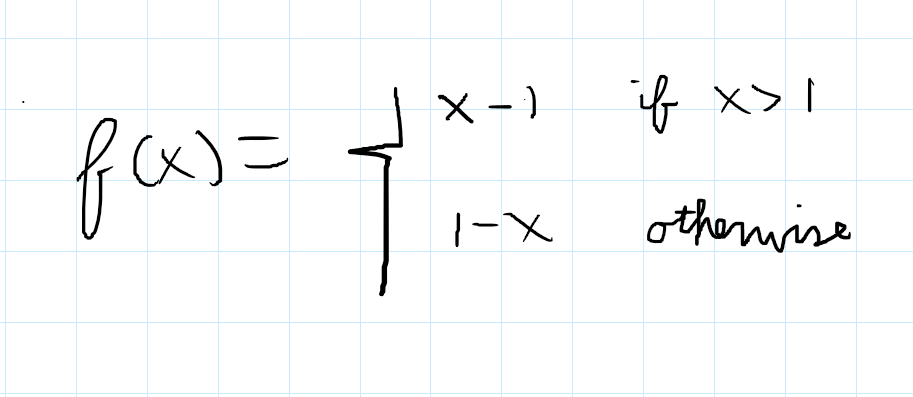 f(x) = { x - 1 if x > 1
1 - x otherwise